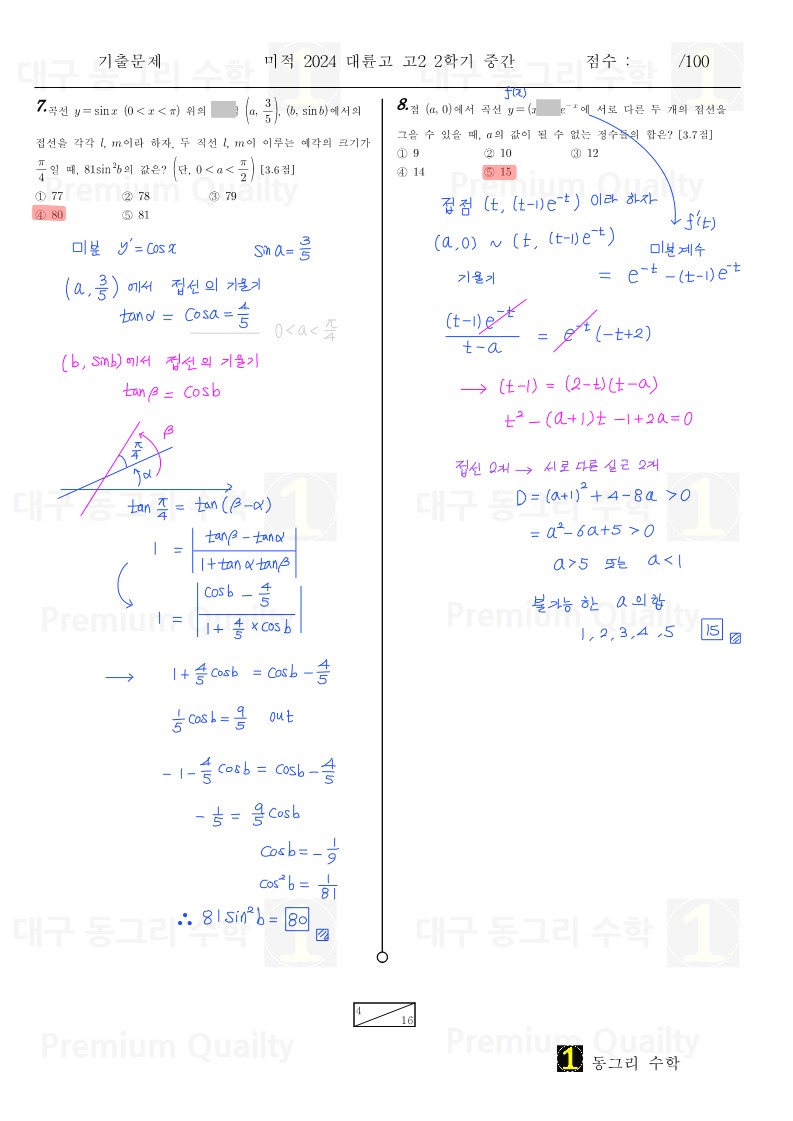 기출문제 미적 2024 대륜고 고2 2학기 중간 점수 : /100
7. 곡선 y = sin x (0 < x < π) 위의 (a, 3/5), (b, sin b)에서의
접선을 각각 l, m이라 하자. 두 직선 l, m이 이루는 예각의 크기가
π/4 일 때, 81sin²b의 값은? (단, 0 < a < π/2) [3.6점]
① 77 ② 78 ③ 79
④ 80 ⑤ 81
미분 y' = cos x sin a = 3/5
(a, 3/5) 에서 접선의 기울기
tanα = cos a = 4/5
0 < a < π/4
(b, sinb)에서 접선의 기울기
tanβ = cosb
π/4 β
α
tan π/4 = tan(β-α)
1 = |(tanβ - tanα)/(1 + tanα tanβ)|
1 = |(cosb - 4/5)/(1 + 4/5 × cosb)|
→ 1 + 4/5 cosb = cosb - 4/5
1/5 cosb = 9/5 out
-1 - 4/5 cosb = cosb - 4/5
-1/5 = 9/5 cosb
cosb = -1/9
cos²b = 1/81
∴ 81sin²b = 80
f(x)
8. 점 (a, 0)에서 곡선 y = (x e^{-x}에 서로 다른 두 개의 접선을
그을 수 있을 때, a의 값이 될 수 없는 정수들의 합은? [3.7점]
① 9 ② 10 ③ 12
④ 14 ⑤ 15
접점 (t, (t-1)e^{-t}) 이라 하자
f'(t)
(a, 0) ~ (t, (t-1)e^{-t}) 미분계수
기울기 = e^{-t} - (t-1)e^{-t}
(t-1)e^{-t}/(t-a) = e^{-t}(-t+2)
→ (t-1) = (2-t)(t-a)
t² - (a+1)t - 1 + 2a = 0
접선 2개 → 서로 다른 실근 2개
D = (a+1)² + 4 - 8a > 0
= a² - 6a + 5 > 0
a > 5 또는 a < 1
불가능한 a의 합
1, 2, 3, 4, 5 15
4 16
1 동그리 수학
대구 동그리 수학 1
Premium Quailty